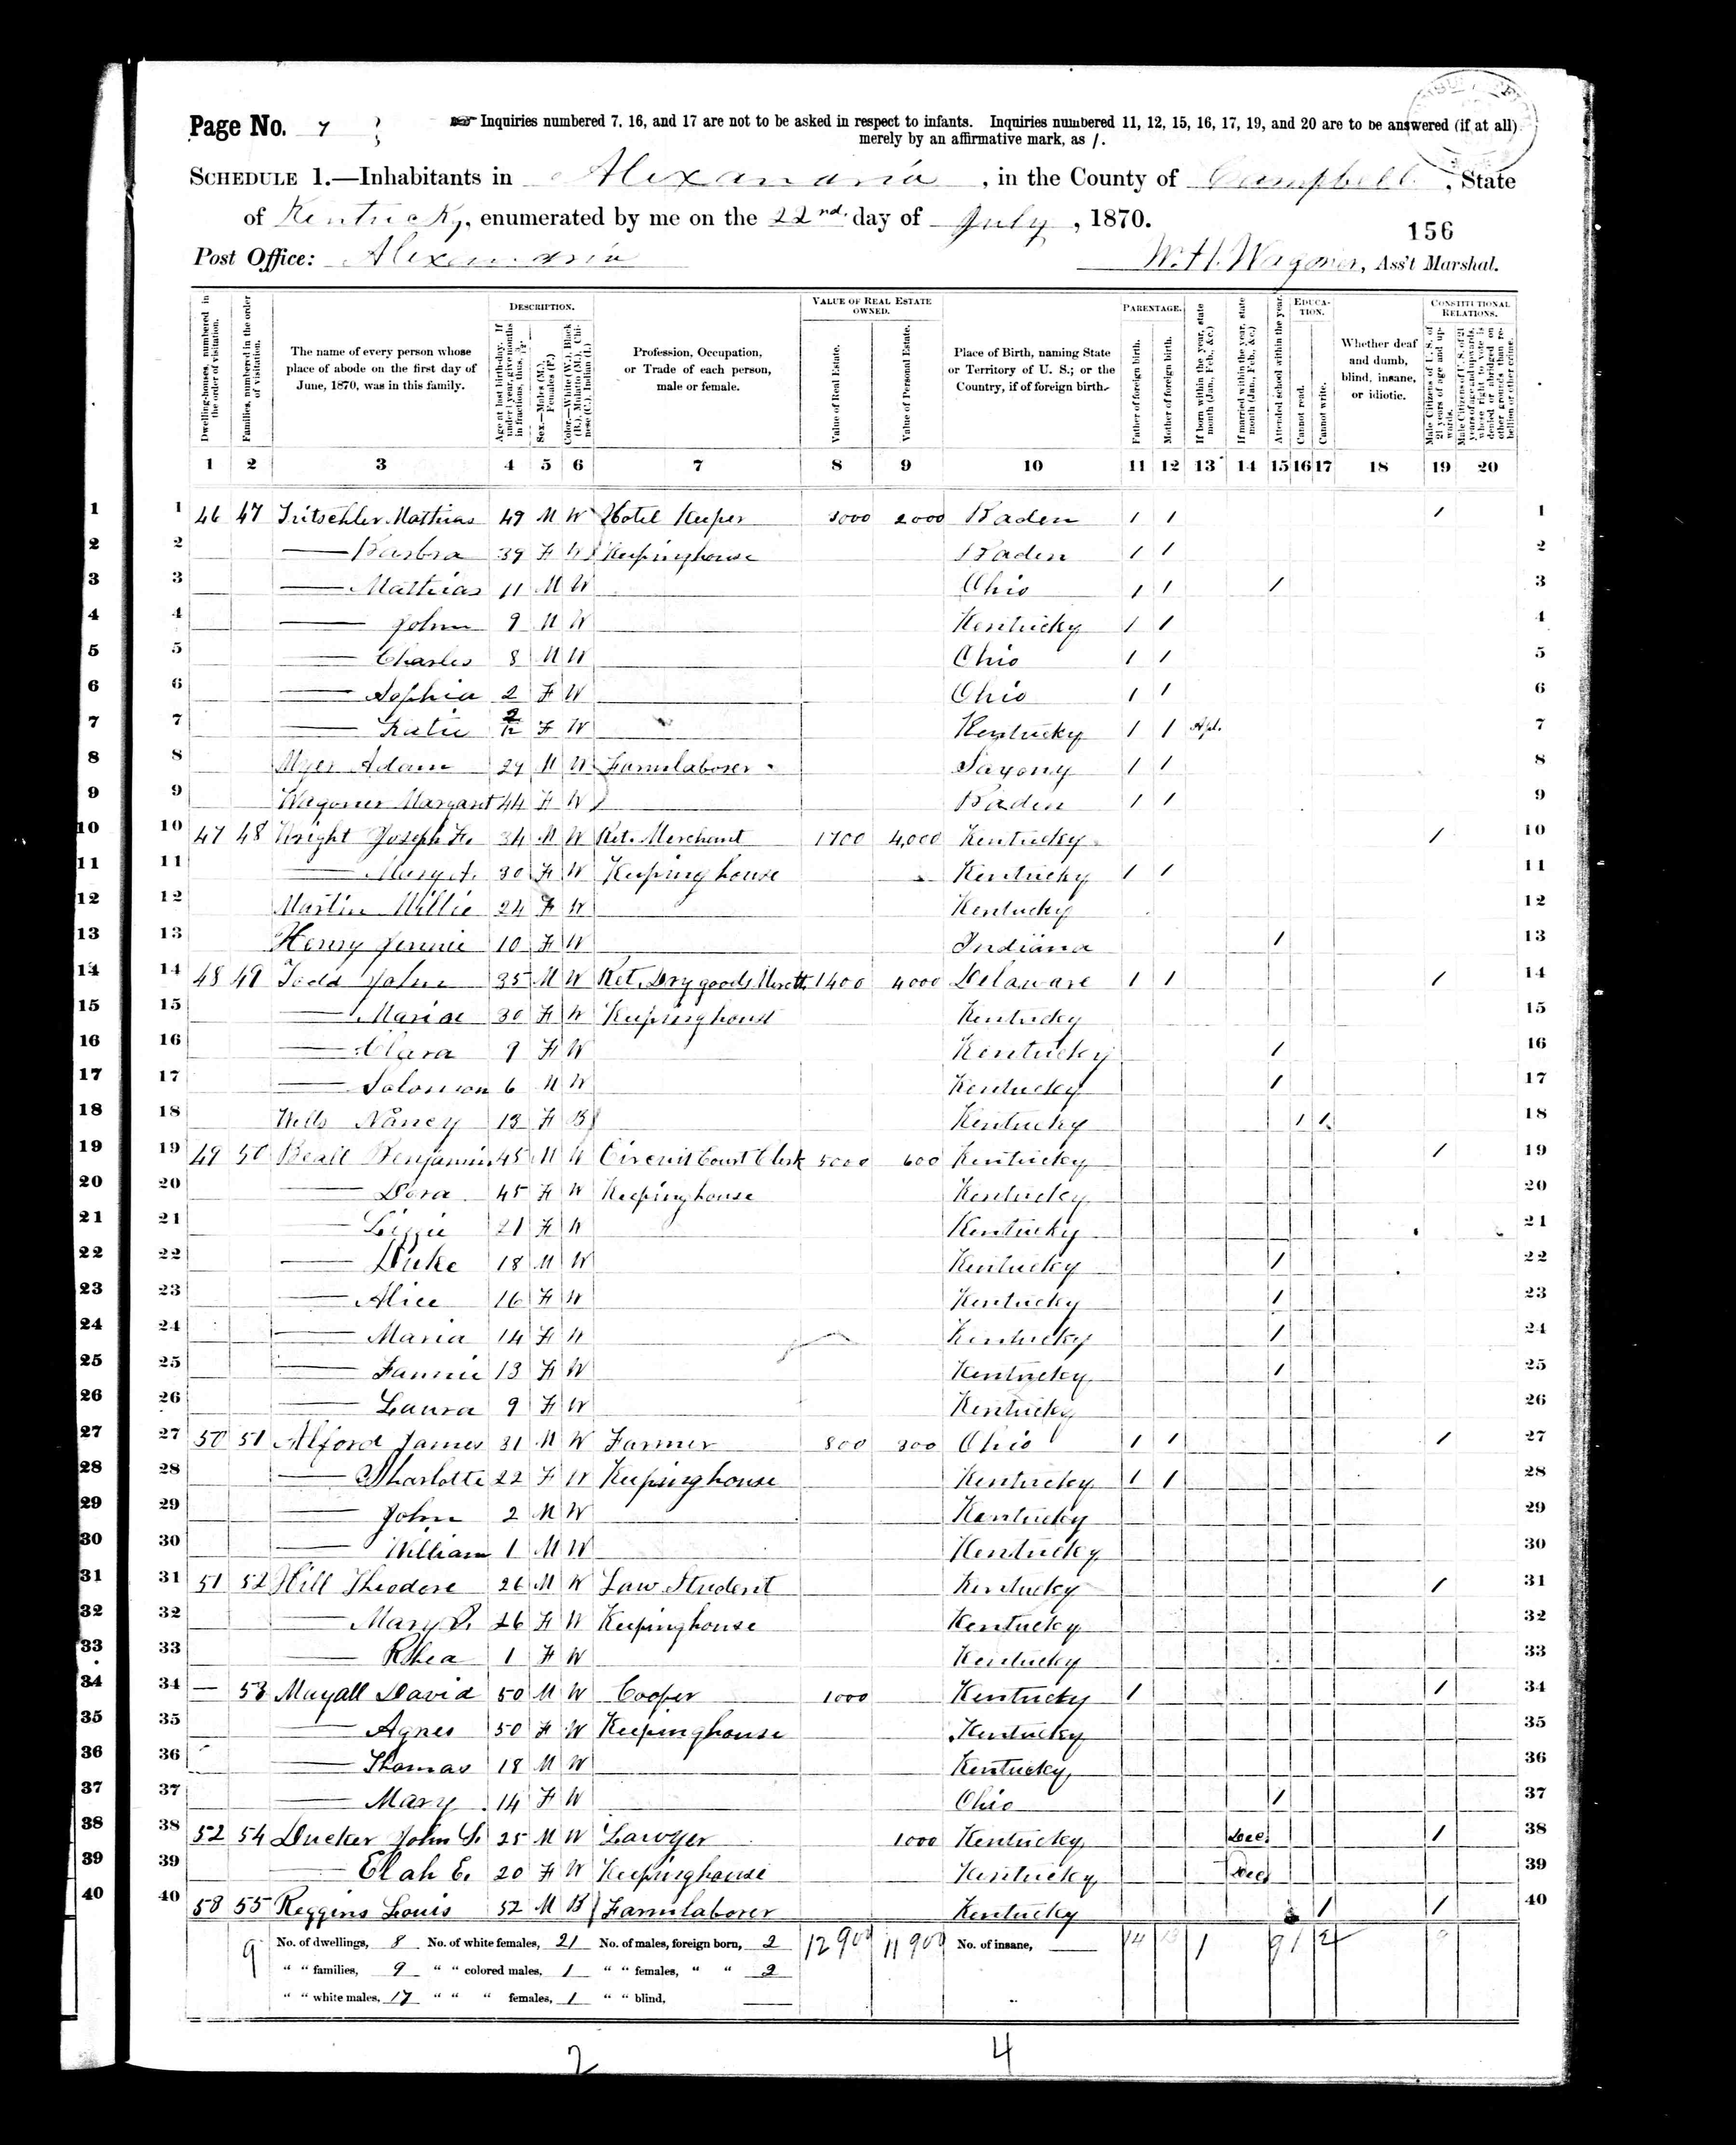 Page No. 7
Inquiries numbered 7, 16, and 17 are not to be asked in respect to infants. Inquiries numbered 11, 12, 15, 16, 17, 19, and 20 are to be answered (if at all)
merely by an affirmative mark, as /.
SCHEDULE 1.—Inhabitants in Alexandria, in the County of Campbell, State
of Kentucky, enumerated by me on the 22nd. day of July, 1870.
156
Post Office: Alexandria
W. H. Wagoner, Ass't Marshal.
Dwelling-houses, numbered in the order of visitation.
Families, numbered in the order of visitation.
The name of every person whose place of abode on the first day of June, 1870, was in this family.
DESCRIPTION.
Age at last birth-day. If under 1 year, give months in fractions, thus, 3/12.
Sex.—Males (M.), Females (F.)
Color.—White (W.), Black (B.), Mulatto (M.), Chinese (C.), Indian (I.)
Profession, Occupation, or Trade of each person, male or female.
VALUE OF REAL ESTATE OWNED.
Value of Real Estate.
Value of Personal Estate.
Place of Birth, naming State or Territory of U. S.; or the Country, if of foreign birth.
PARENTAGE.
Father of foreign birth.
Mother of foreign birth.
If born within the year, state month (Jan., Feb., &c.)
If married within the year, state month (Jan., Feb., &c.)
Attended school within the year.
EDUCATION.
Cannot read.
Cannot write.
Whether deaf and dumb, blind, insane, or idiotic.
CONSTITUTIONAL RELATIONS.
Male Citizens of U. S. of 21 years of age and upwards.
Male Citizens of U. S. of 21 years of age and upwards, whose right to vote is denied or abridged on other grounds than rebellion or other crime.
1 2 3 4 5 6 7 8 9 10 11 12 13 14 15 16 17 18 19 20
1 1 46 47 Tritschler Mathias 49 M W Hotel Keeper 3000 2000 Baden / / / 1
2 2 — Barbra 39 F W Keepinghouse Baden / / 2
3 3 — Mathias 11 M W Ohio / / / 3
4 4 — John 9 M W Kentucky / / 4
5 5 — Charles 8 M W Ohio / / 5
6 6 — Sophia 2 F W Ohio / / 6
7 7 — Katie 2/12 F W Kentucky / / Apl. 7
8 8 Myer Adam 29 M W Farmlaborer Saxony / / 8
9 9 Wagoner Margaret 44 F W Baden / / 9
10 10 47 48 Wright Joseph F. 34 M W Ret. Merchant 1700 4,000 Kentucky / 10
11 11 — Mary A. 30 F W Keeping house Kentucky / / 11
12 12 Martin Millie 24 F W Kentucky 12
13 13 Henry Jennie 10 F W Indiana / 13
14 14 48 49 Todd John 35 M W Ret. Dry goods Mercht. 1400 4000 Delaware / / / 14
15 15 — Maria 30 F W Keepinghouse Kentucky 15
16 16 — Clara 9 F W Kentucky / 16
17 17 — Solomon 6 M W Kentucky / 17
18 18 Wells Nancy 13 F B Kentucky / / 18
19 19 49 50 Beall Benjamin 45 M W Circuit Court Clerk 5000 600 Kentucky / 19
20 20 — Dora 45 F W Keepinghouse Kentucky 20
21 21 — Lizzie 21 F W Kentucky 21
22 22 — Duke 18 M W Kentucky / 22
23 23 — Alice 16 F W Kentucky / 23
24 24 — Maria 14 F W Kentucky / 24
25 25 — Fannie 13 F W Kentucky / 25
26 26 — Laura 9 F W Kentucky 26
27 27 50 51 Alford James 31 M W Farmer 800 300 Ohio / / / 27
28 28 — Sharlotte 22 F W Keepinghouse Kentucky / / 28
29 29 — John 2 M W Kentucky 29
30 30 — William 1 M W Kentucky 30
31 31 51 52 Hill Theodore 26 M W Law Student Kentucky / 31
32 32 — Mary 26 F W Keepinghouse Kentucky 32
33 33 — Rhea 1 F W Kentucky 33
34 34 — 53 Mayall David 50 M W Cooper 1000 Kentucky / / 34
35 35 — Agnes 50 F W Keepinghouse Kentucky 35
36 36 — Thomas 18 M W Kentucky 36
37 37 — Mary 14 F W Ohio / 37
38 38 52 54 Ducker John S. 25 M W Lawyer 1000 Kentucky Dec. / 38
39 39 — Elah E. 20 F W Keepinghouse Kentucky Dec. 39
40 40 53 55 Reggins Louis 52 M B Farmlaborer Kentucky / / 40
9 No. of dwellings, 8 No. of white females, 21 No. of males, foreign born, 2 12900 11900 No. of insane, 14 13 1 9 1 2 9
" " families, 9 " " colored males, 1 " " females, " " 2
" " white males, 17 " " " females, 1 " " blind,
2 4